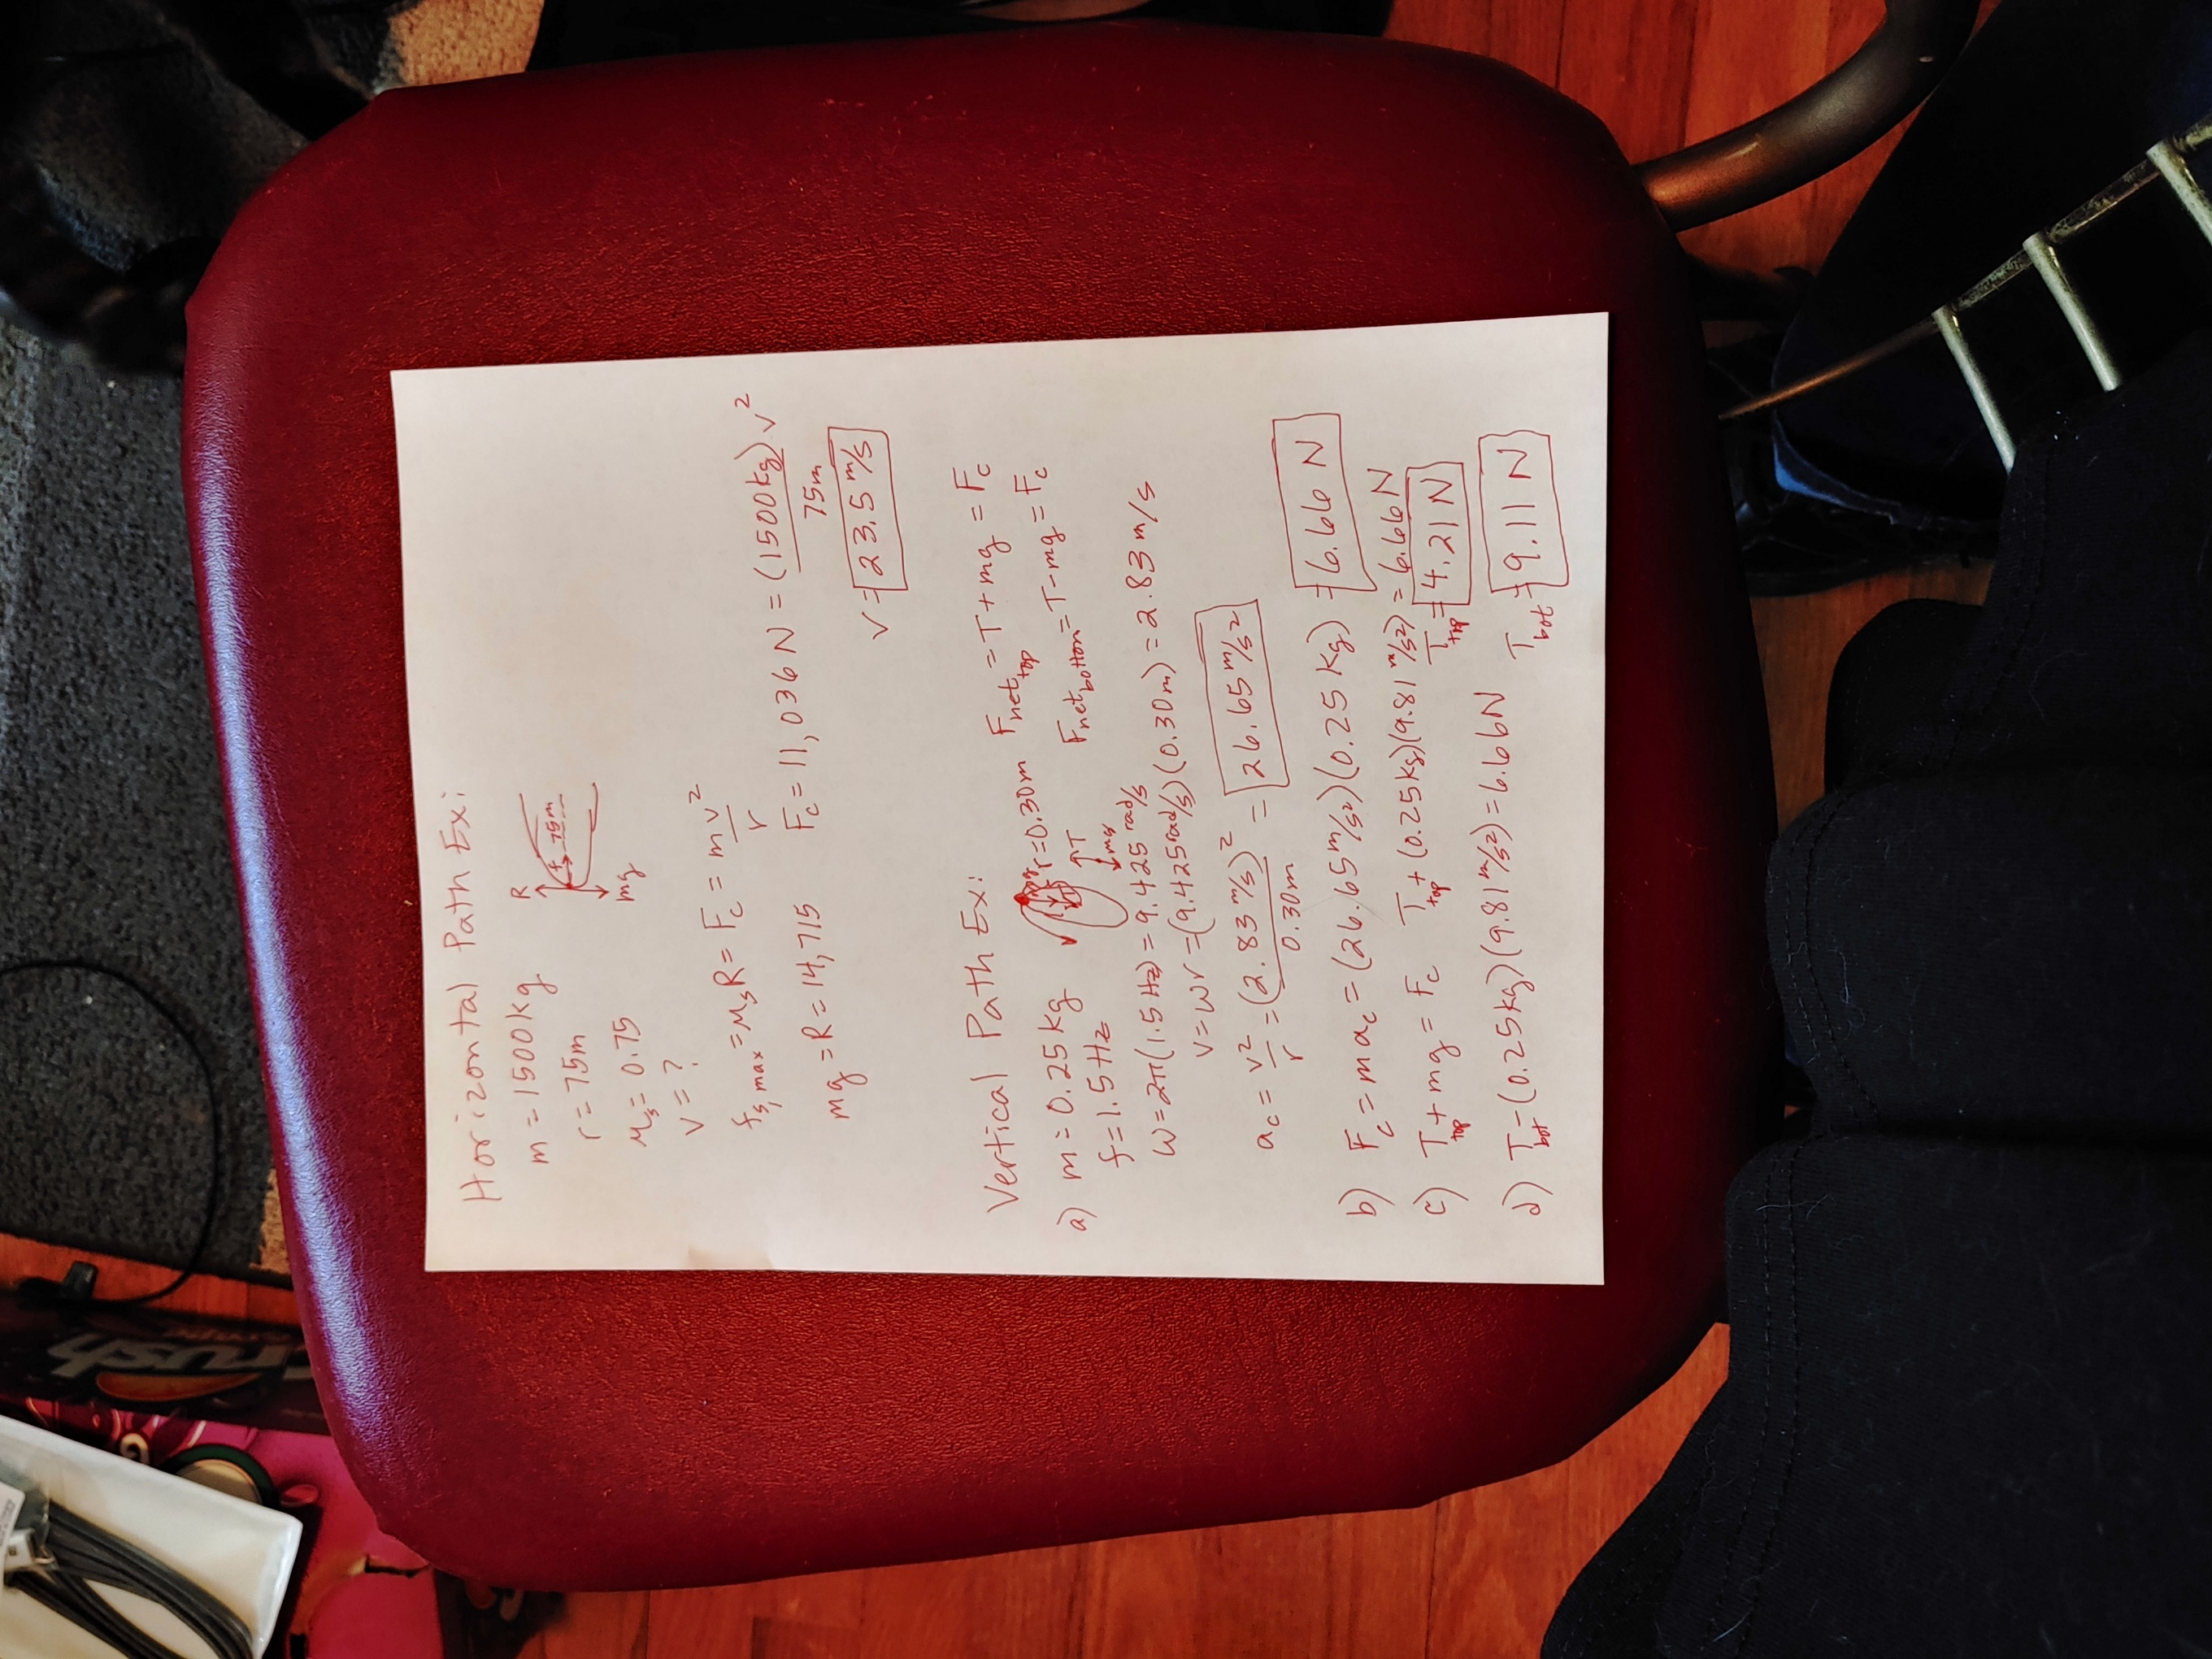 Horizontal Path Ex:
m = 1500kg
R
f 75m
mg
r = 75m
μs = 0.75
v = ?
fs,max = μsR = Fc = mv²/r
mg = R = 14,715 Fc = 11,036 N = (1500kg)v²/75m
v = 23.5 m/s
Vertical Path Ex:
a) m = 0.25kg r = 0.30m Fnet top = T + mg = Fc
f = 1.5 Hz T mg Fnet bottom = T - mg = Fc
ω = 2π(1.5 Hz) = 9.425 rad/s
v = ωr = (9.425 rad/s)(0.30m) = 2.83 m/s
ac = v²/r = (2.83 m/s)²/0.30m = 26.65 m/s²
b) Fc = mac = (26.65 m/s²)(0.25 kg) = 6.66 N
c) Ttop + mg = Fc Ttop + (0.25kg)(9.81 m/s²) = 6.66N
Ttop = 4.21 N
d) Tbot - (0.25kg)(9.81 m/s²) = 6.66N Tbot = 9.11 N
rush